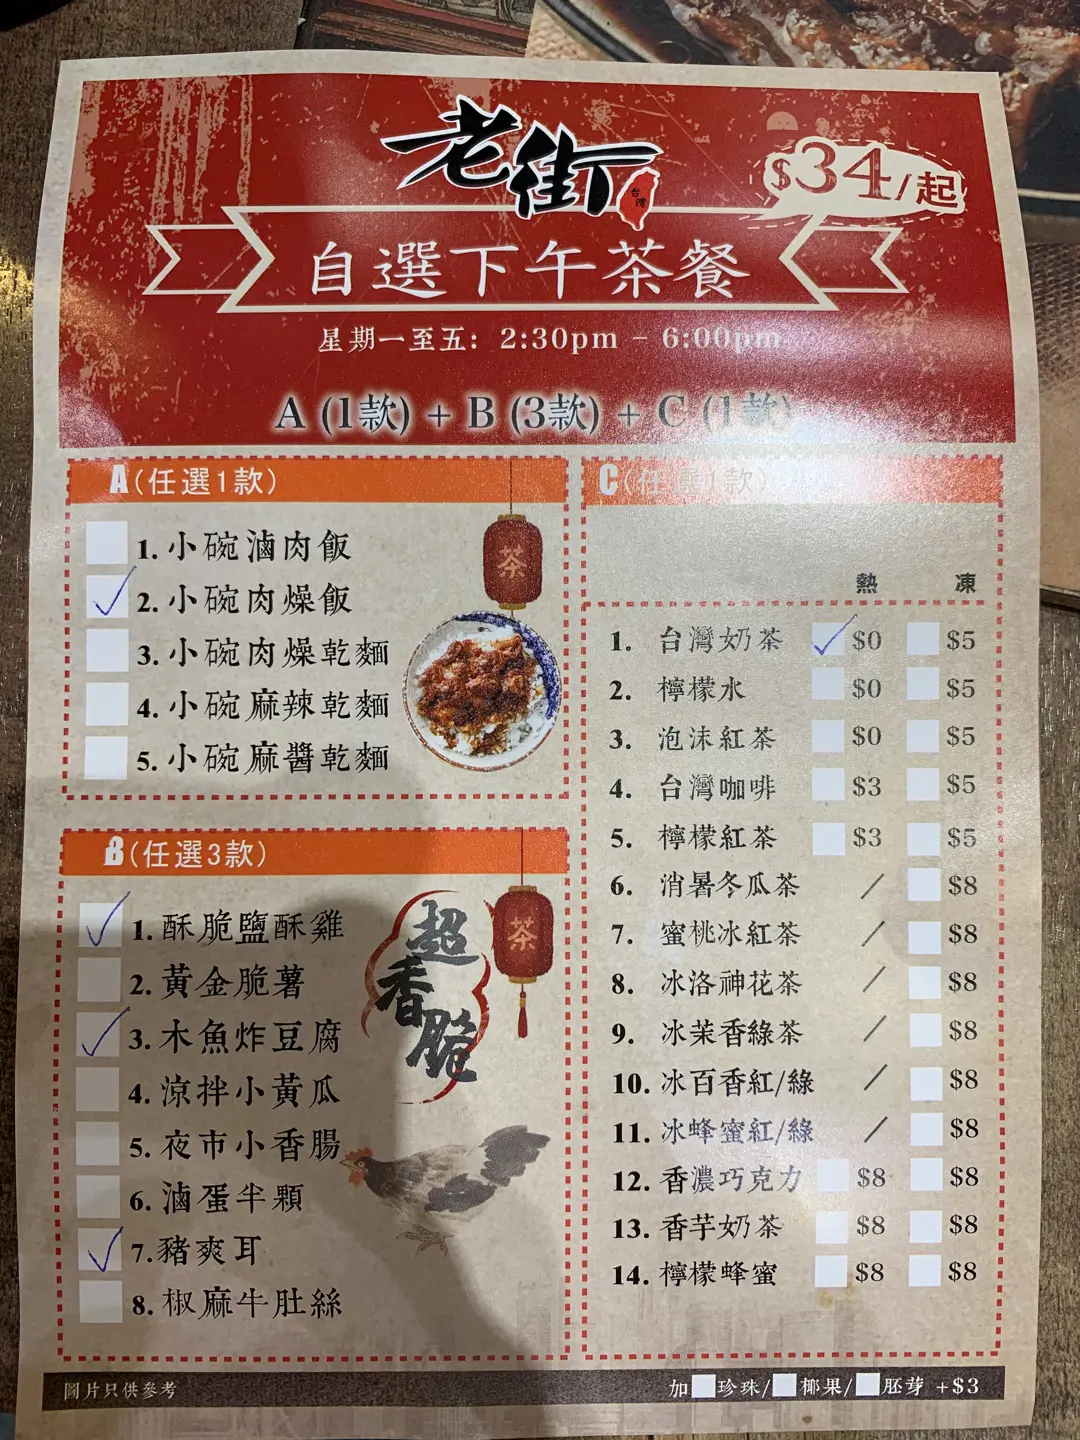 老街
台灣
$34/起
自選下午茶餐
星期一至五: 2:30pm - 6:00pm
A (1款) + B (3款) + C (1款)
A(任選1款)
1. 小碗滷肉飯
2. 小碗肉燥飯
3. 小碗肉燥乾麵
4. 小碗麻辣乾麵
5. 小碗麻醬乾麵
茶
B(任選3款)
1. 酥脆鹽酥雞
2. 黃金脆薯
3. 木魚炸豆腐
4. 涼拌小黃瓜
5. 夜市小香腸
6. 滷蛋半顆
7. 豬爽耳
8. 椒麻牛肚絲
超香脆
茶
C(任選1款)
熱 凍
1. 台灣奶茶 $0 $5
2. 檸檬水 $0 $5
3. 泡沫紅茶 $0 $5
4. 台灣咖啡 $3 $5
5. 檸檬紅茶 $3 $5
6. 消暑冬瓜茶 / $8
7. 蜜桃冰紅茶 / $8
8. 冰洛神花茶 / $8
9. 冰茉香綠茶 / $8
10. 冰百香紅/綠 / $8
11. 冰蜂蜜紅/綠 / $8
12. 香濃巧克力 $8 $8
13. 香芋奶茶 $8 $8
14. 檸檬蜂蜜 $8 $8
圖片只供參考
加 珍珠/ 椰果/ 胚芽 +$3